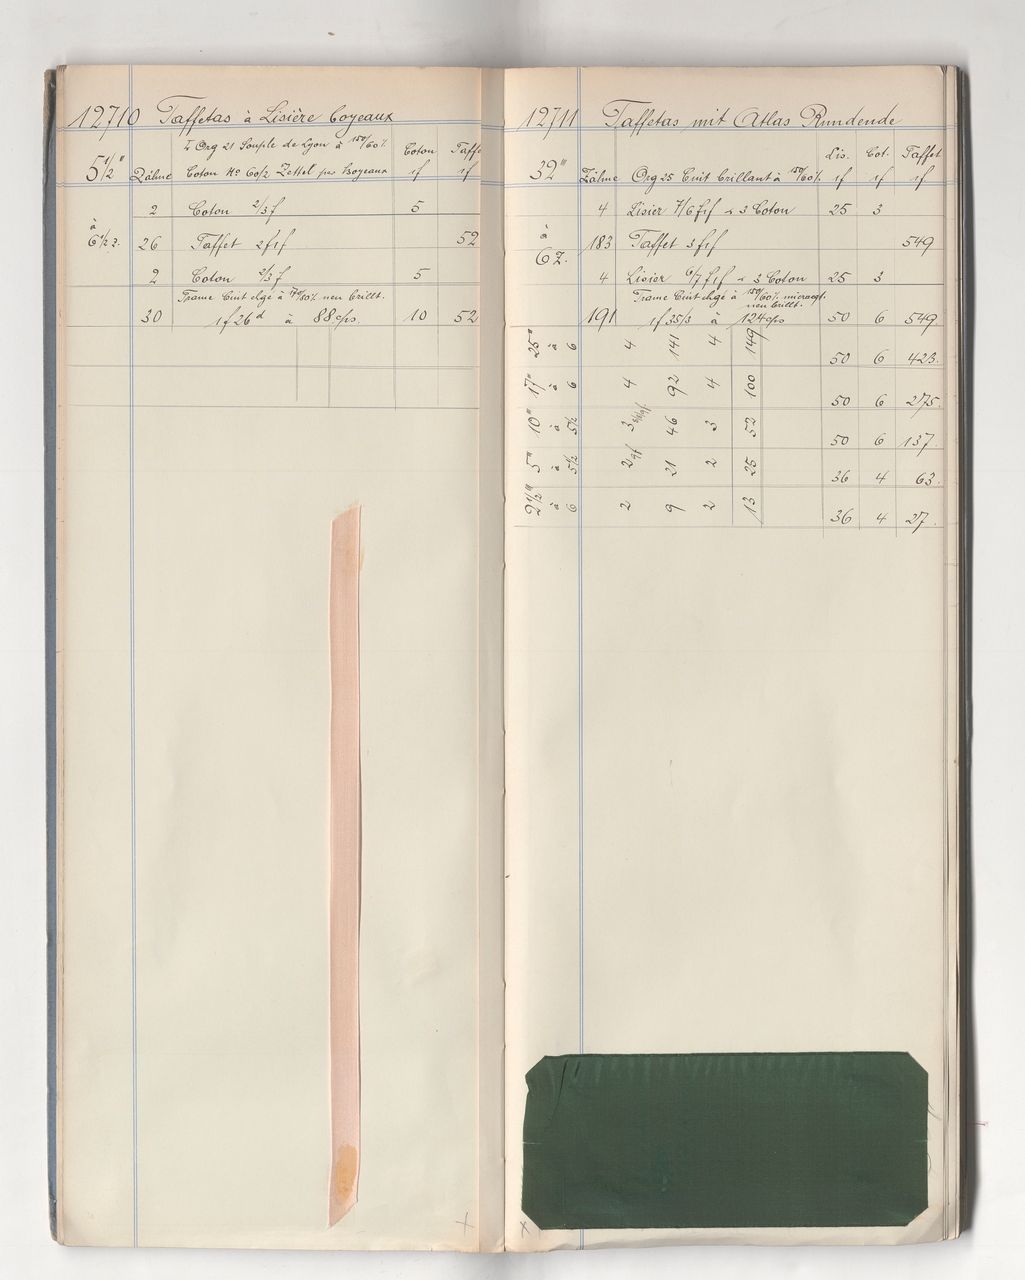 12710 Taffetas à Lisière Boyeaux
Org 21 Souple de Lyon à 150/60% Coton Taffet
5 1/2''' Zähne Coton No 60/2 Zettel pr Boyeaux 1f 1f
2 Coton 2/3 f 5
à
6 1/2 Z. 26 Taffet 2f1f 52
2 Coton 2/3 f 5
Trame Cuit chgé à neu brillt.
30 1f 26d à 88 c/ps 10 52
12711 Taffetas mit Atlas Rundende
Lis. Cot. Taffet
32''' Zähne Org 25 Cuit brillant à 150/60% 1f 1f 1f
4 Lisier 7/6 f1f 3 Coton 25 3
à
6 Z. 183 Taffet 3f1f 549
4 Lisier 6/7 f1f 3 Coton 25 3
Trame Cuit chgé à 150/60%
neu brillt.
191 1f 35/3 à 124 c/ps 50 6 549
25''' à 6 4 141 4 149 50 6 423.
17''' à 6 4 92 4 100 50 6 275.
10''' à 5 1/2 3 46 3 52 50 6 137.
5''' à 5 1/2 2 21 2 25 36 4 63.
2 1/2''' à 6 2 9 2 13 36 4 27.
x
x